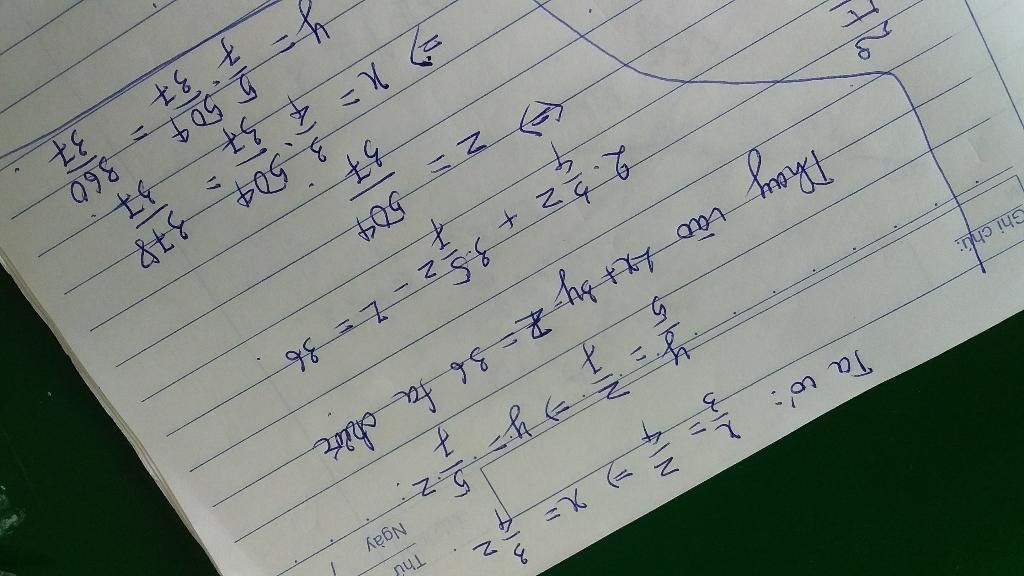 Thứ
Ngày
Ghi chú:
Ta có:
x/3 = z/4 ⇒ x = 3z/4
y/5 = z/7 ⇒ y = 5z/7
Thay vào 2x + 3y - z = 36 ta được
2. 3z/4 + 3.5z/7 - z = 36
⇒ z = 504/37
⇒ x = 3/4 . 504/37 = 378/37
y = 5/7 . 504/37 = 360/37